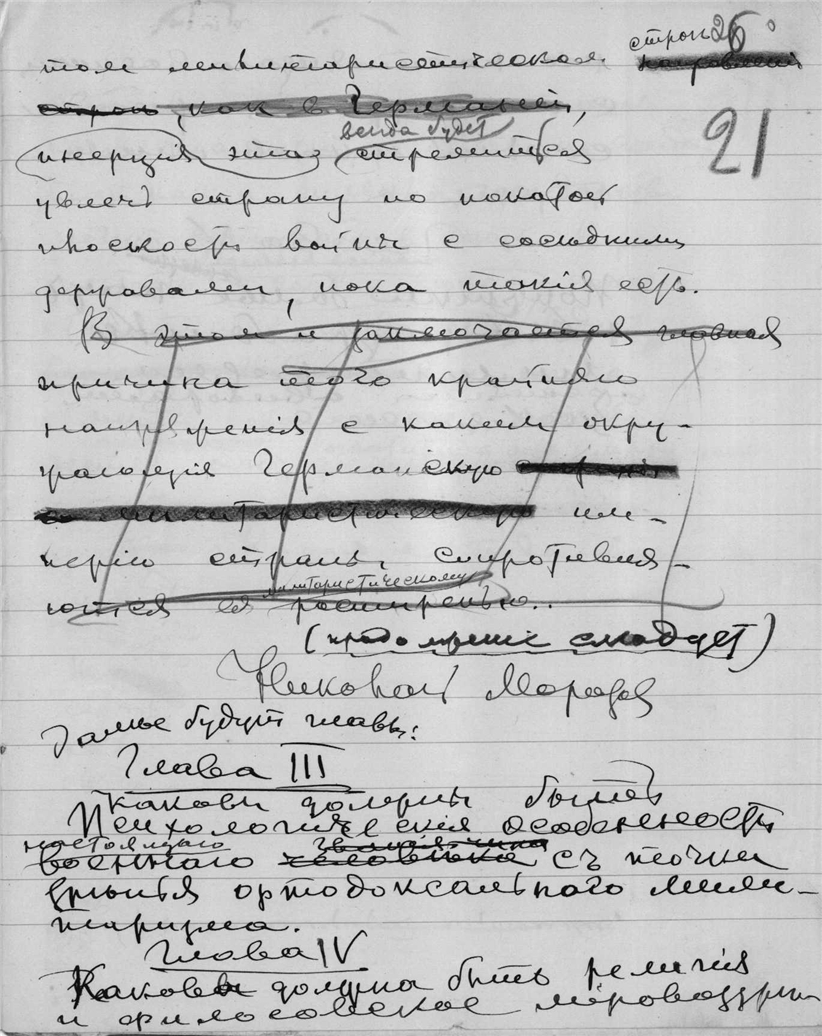 том милитаристическая строй
26
21
строй, как в Германии,
всегда будет
инерция эта стремиться
увлечь страну по покатой
плоскости войны с соседними
державами, пока такія есть.
В этом и заключается главная
причина того крайняго
напряженія с каким окру-
жающія Германскую
и милитаристическую им-
перію страны, сопротивля-
милитаристическому
ются ея расширенью..
(продолженіе следует)
Николай Морозов
Далее будут главы:
Глава III
Каковы должны быть
Психологическія особенности
настоящаго
военнаго человека съ точки
зренья ортодоксального мили-
таризма.
Глава IV
Какова должна быть религия
и философское мировоззрен